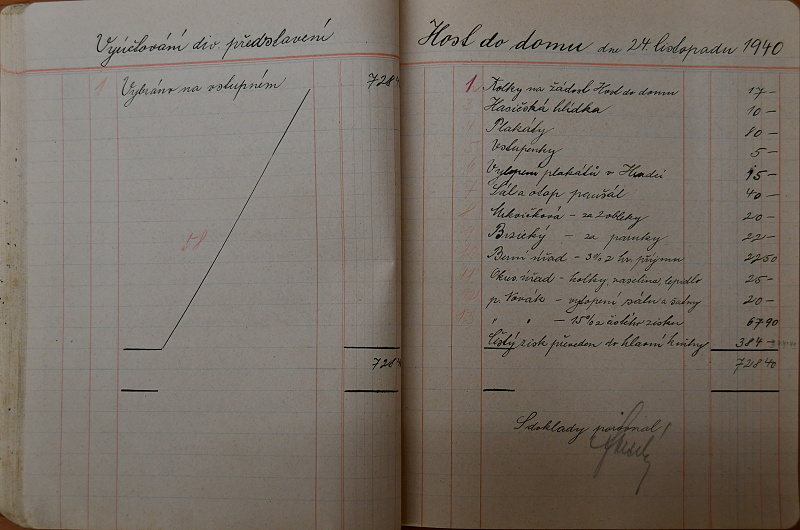 Vyúčtování div. představení
1 Vybráno na vstupném 728 4
728 40
Host do domu dne 24. listopadu 1940
1 Kolky na žádost Host do domu 17 –
2 Hasičská hlídka 10 –
Plakáty 80 –
Vstupenky 5 –
Vylepení plakátů v 15 –
7 Sál a otop paušál 40 –
– za 2 obleky 20 –
– za paruky 22 –
Berní úřad – 3% z hr. příjmu 22 50
úřad – kolky, vaselina, lepidlo 25 –
p. Novák – vytopení sálu a šatny 20 –
" " – 15% z čistého zisku 67 90
Čistý zisk převeden do hlavní knihy 384 –
728 40
S doklady porovnal!